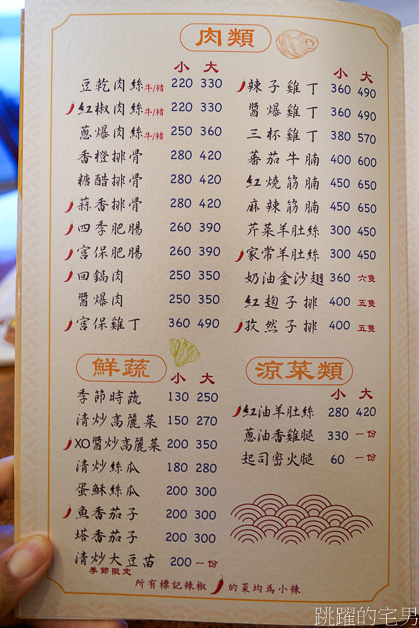 肉類
小 大
豆乾肉絲牛/豬 220 330
紅椒肉絲牛/豬 220 330
蔥爆肉絲牛/豬 250 360
香橙排骨 280 420
糖醋排骨 280 420
蒜香排骨 280 420
四季肥腸 260 390
宮保肥腸 260 390
回鍋肉 250 350
醬爆肉 250 350
宮保雞丁 360 490
小 大
辣子雞丁 360 490
醬爆雞丁 360 490
三杯雞丁 380 570
蕃茄牛腩 400 600
紅燒筋腩 450 650
麻辣筋腩 450 650
芹菜羊肚絲 300 450
家常羊肚絲 300 450
奶油金沙翅 360 六隻
紅麴子排 400 五隻
孜然子排 400 五隻
鮮蔬
小 大
季節時蔬 130 250
清炒高麗菜 150 270
XO醬炒高麗菜 200 350
清炒絲瓜 180 280
蛋酥絲瓜 200 300
魚香茄子 200 300
塔香茄子 200 300
清炒大豆苗 200 一份
季節限定
涼菜類
小 大
紅油羊肚絲 280 420
蔥油香雞腿 330 一份
起司密火腿 60 一份
所有標記辣椒 的菜均為小辣
跳躍的宅男